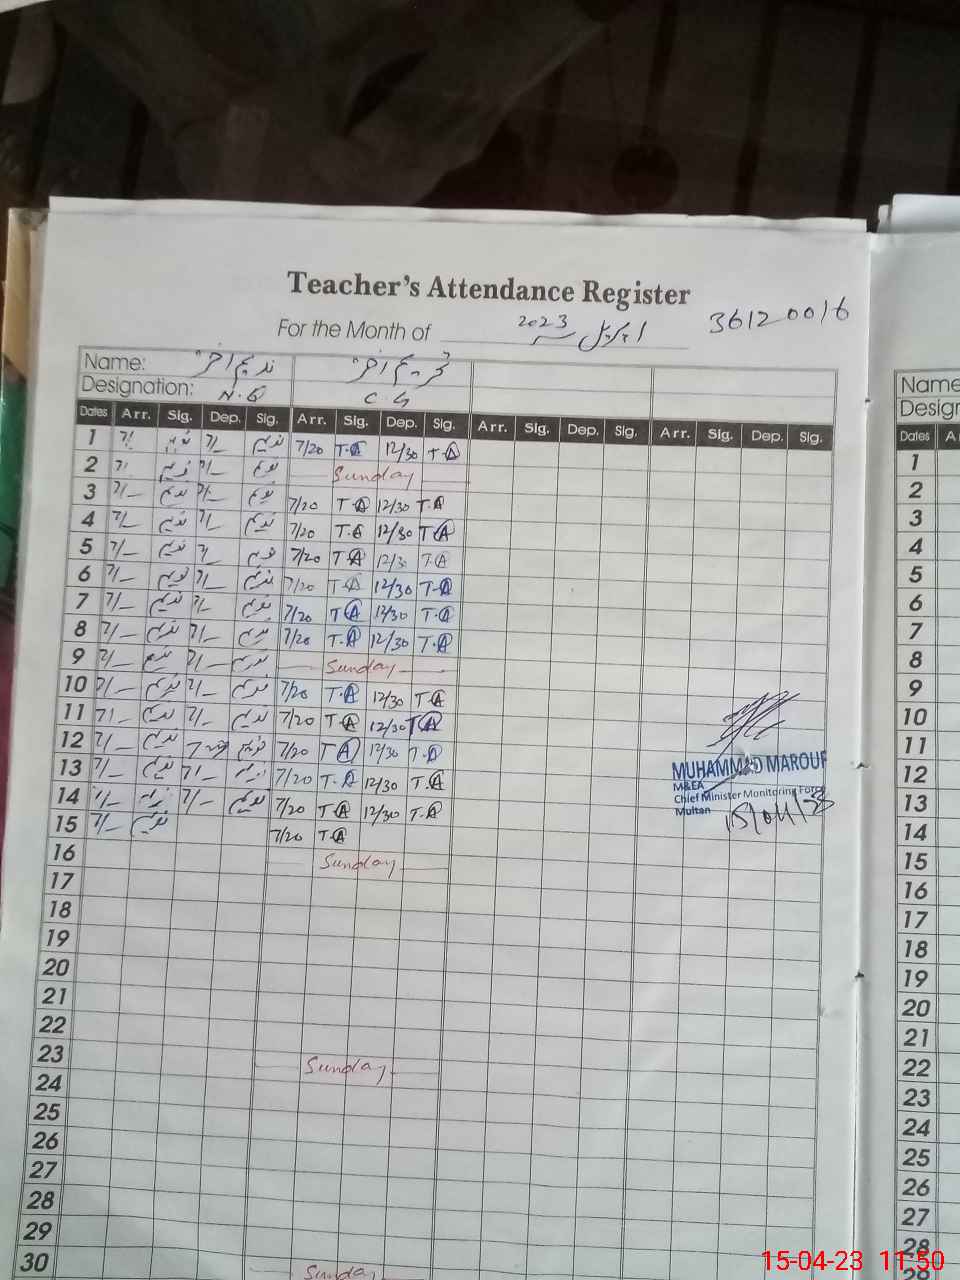 Teacher's Attendance Register
For the Month of 2023 اپریل 36120016
Name: ندیم اختر
Designation: N.Q C.G
Dates Arr. Sig. Dep. Sig. Arr. Sig. Dep. Sig. Arr. Sig. Dep. Sig. Arr. Sig. Dep. Sig.
1 7/- ندیم 7/- ندیم 7/20 T.A 12/30 T.A
2 7/- ندیم 7/- ندیم Sunday
3 7/- ندیم 7/- ندیم 7/20 T.A 12/30 T.A
4 7/- ندیم 7/- ندیم 7/20 T.A 12/30 T.A
5 7/- ندیم 7/- ندیم 7/20 T.A 12/30 T.A
6 7/- ندیم 7/- ندیم 7/20 T.A 12/30 T.A
7 7/- ندیم 7/- ندیم 7/20 T.A 12/30 T.A
8 7/- ندیم 7/- ندیم 7/20 T.A 12/30 T.A
9 7/- ندیم 7/- ندیم Sunday
10 7/- ندیم 7/- ندیم 7/20 T.A 12/30 T.A
11 7/- ندیم 7/- ندیم 7/20 T.A 12/30 T.A
12 7/- ندیم ندیم 7/20 T.A 12/30 T.A
13 7/- ندیم 7/- ندیم 7/20 T.A 12/30 T.A
14 7/- ندیم 7/- ندیم 7/20 T.A 12/30 T.A
15 7/- ندیم 7/20 T.A
16 Sunday
17
18
19
20
21
22
23 Sunday
24
25
26
27
28
29
30 Sunday
MUHAMMAD MAROUF
M&EA
Chief Minister Monitoring Force
Multan
15/04/23
Name
Design
Dates A
1
2
3
4
5
6
7
8
9
10
11
12
13
14
15
16
17
18
19
20
21
22
23
24
25
26
27
28
29
15-04-23 11:50